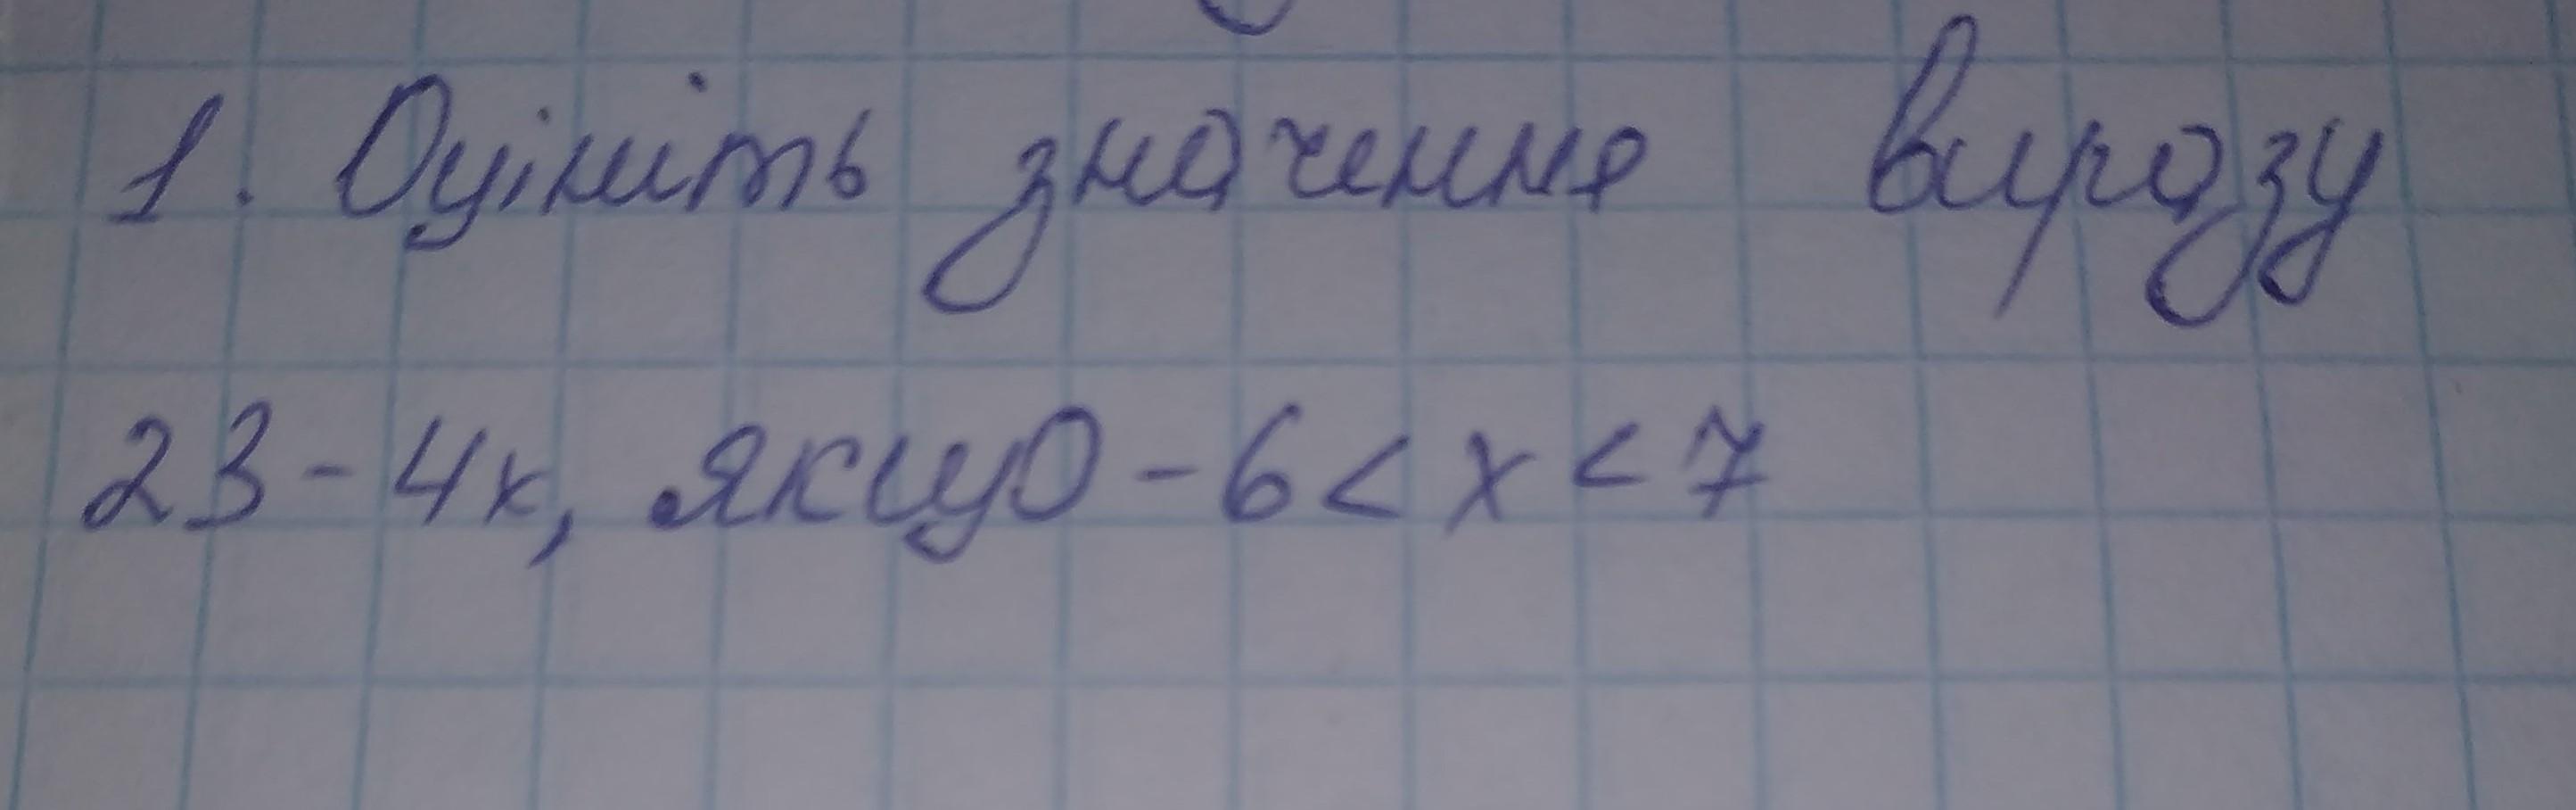 1. Оцініть значення виразу
23 - 4x, якщо - 6 < x < 7